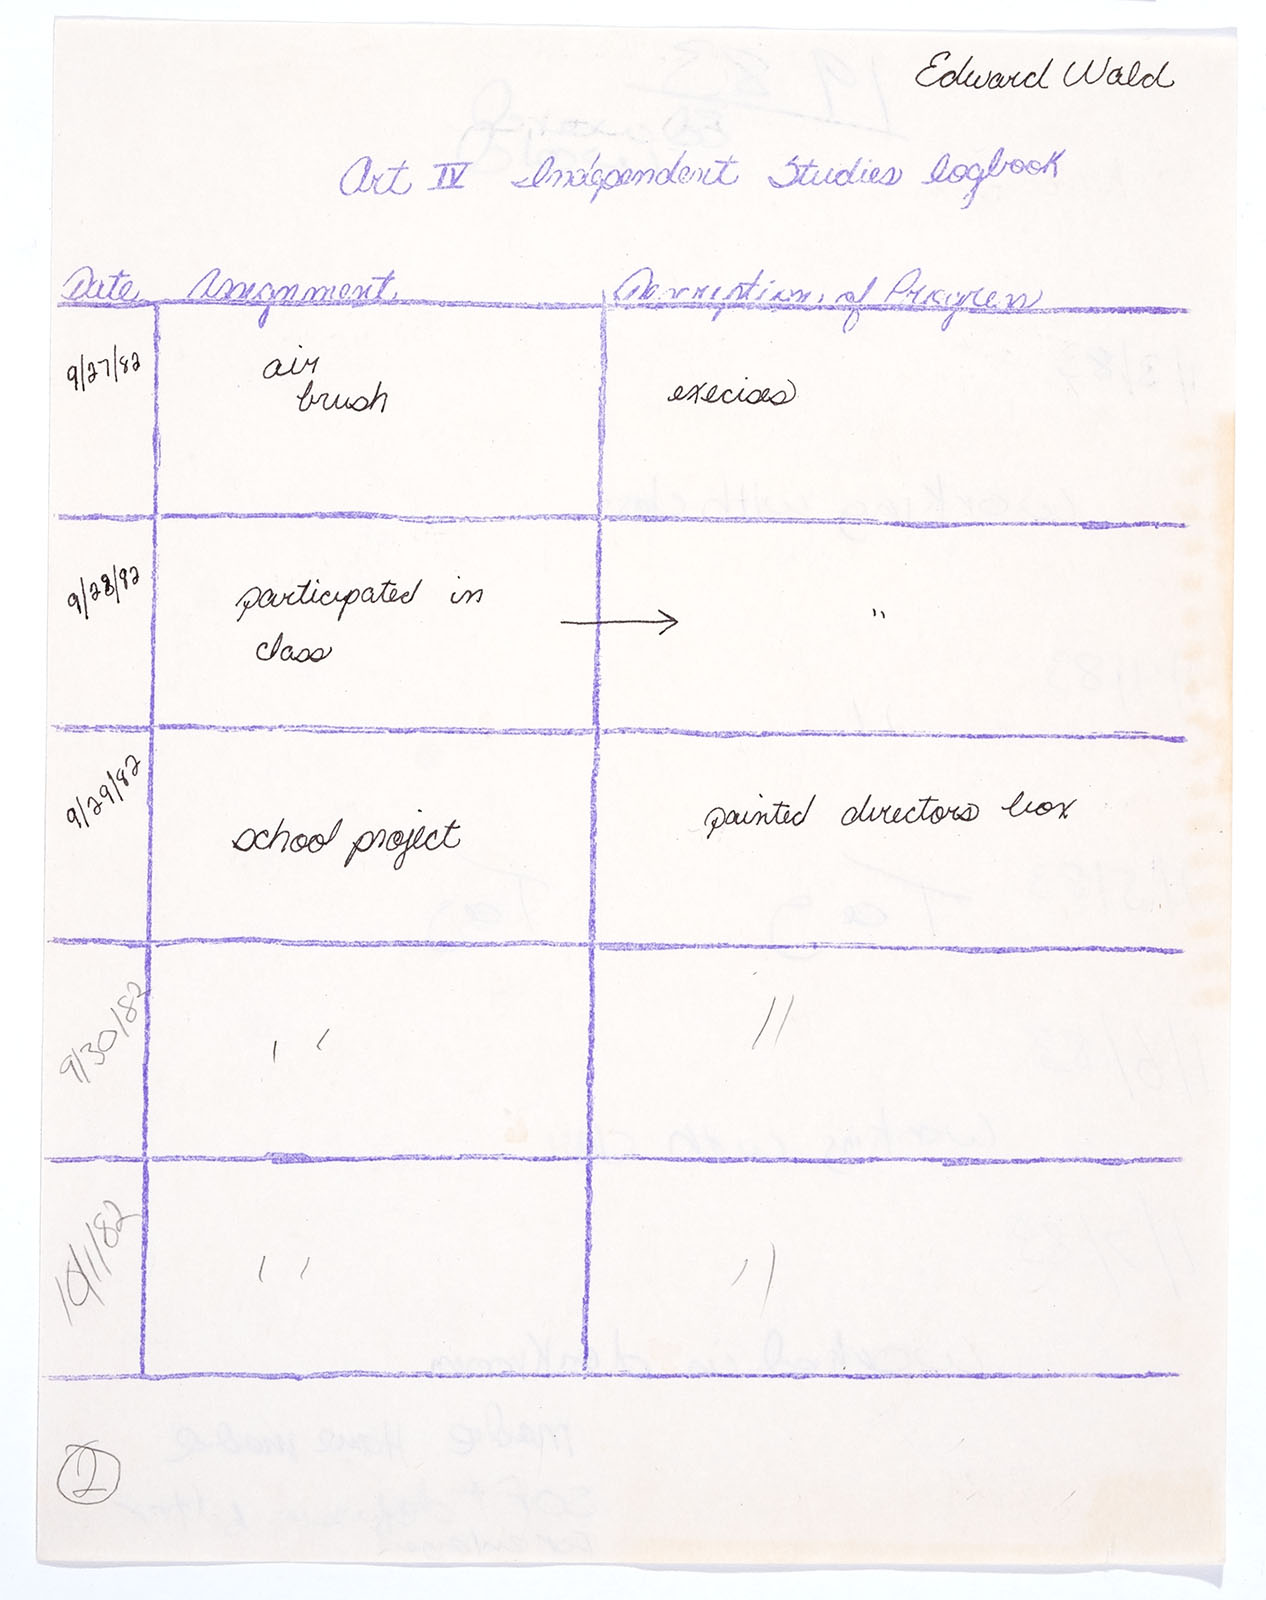 Edward Wald
Art IV Independent Studies Logbook
Date Assignment Description of Progress
9/27/82 air brush execises
9/28/82 participated in class → "
9/29/82 school project painted directors box
9/30/82 " "
10/1/82 " "
2